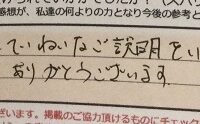 感想が、私達の何よりの力となり今後の参考と
ていねいなご説明をい
ありがとうございます.
います。掲載のご協力頂けるものにチェック